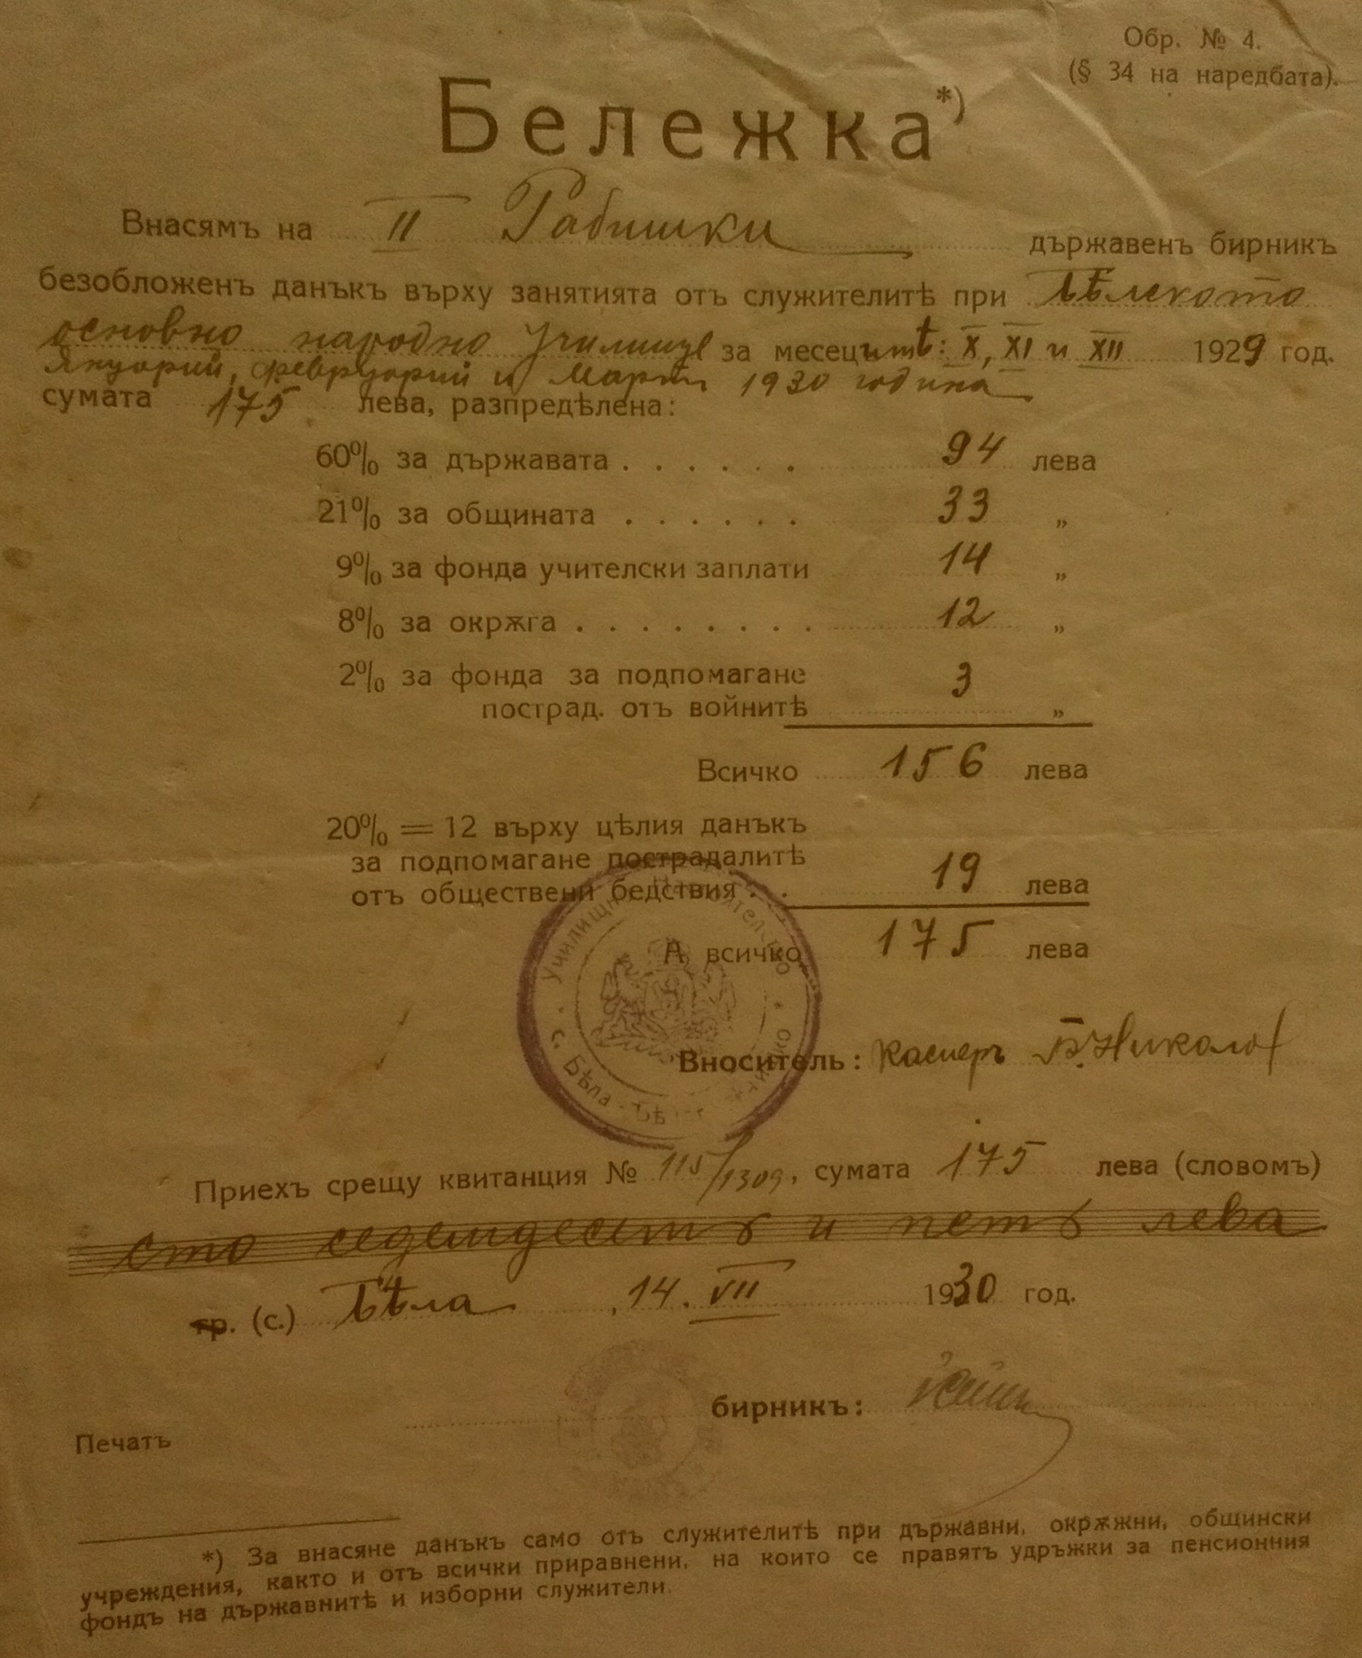 Обр. № 4.
(§ 34 на наредбата).
Бележка*)
Внасямъ на II Рабишки държавенъ бирникъ
безобложенъ данъкъ върху занятията отъ служителитѣ при Бѣлското
основно народно училище за месецитѣ: X, XI и XII 1929 год.
Януарий, февруарий и Мартъ 1930 година
сумата 175 лева, разпредѣлена:
60% за държавата . . . . . . 94 лева
21% за общината . . . . . . 33 „
9% за фонда учителски заплати 14 „
8% за окрѫга . . . . . . . . 12 „
2% за фонда за подпомагане
пострад. отъ войнитѣ 3 „
Всичко 156 лева
20% = 12 върху цѣлия данъкъ
за подпомагане пострадалитѣ
отъ обществени бедствия . . 19 лева
А всичко 175 лева
Училищно Настоятелство
с. Бѣла
Вноситель: Касиеръ Б. Николов
Приехъ срещу квитанция № 115/1309, сумата 175 лева (словомъ)
сто седемдесетъ и петь лева
гр. (с.) Бѣла, 14. VII 1930 год.
бирникъ:
Печатъ
*) За внасяне данъкъ само отъ служителитѣ при държавни, окрѫжни, общински
учреждения, както и отъ всички приравнени, на които се правятъ удръжки за пенсионния
фондъ на държавнитѣ и изборни служители.